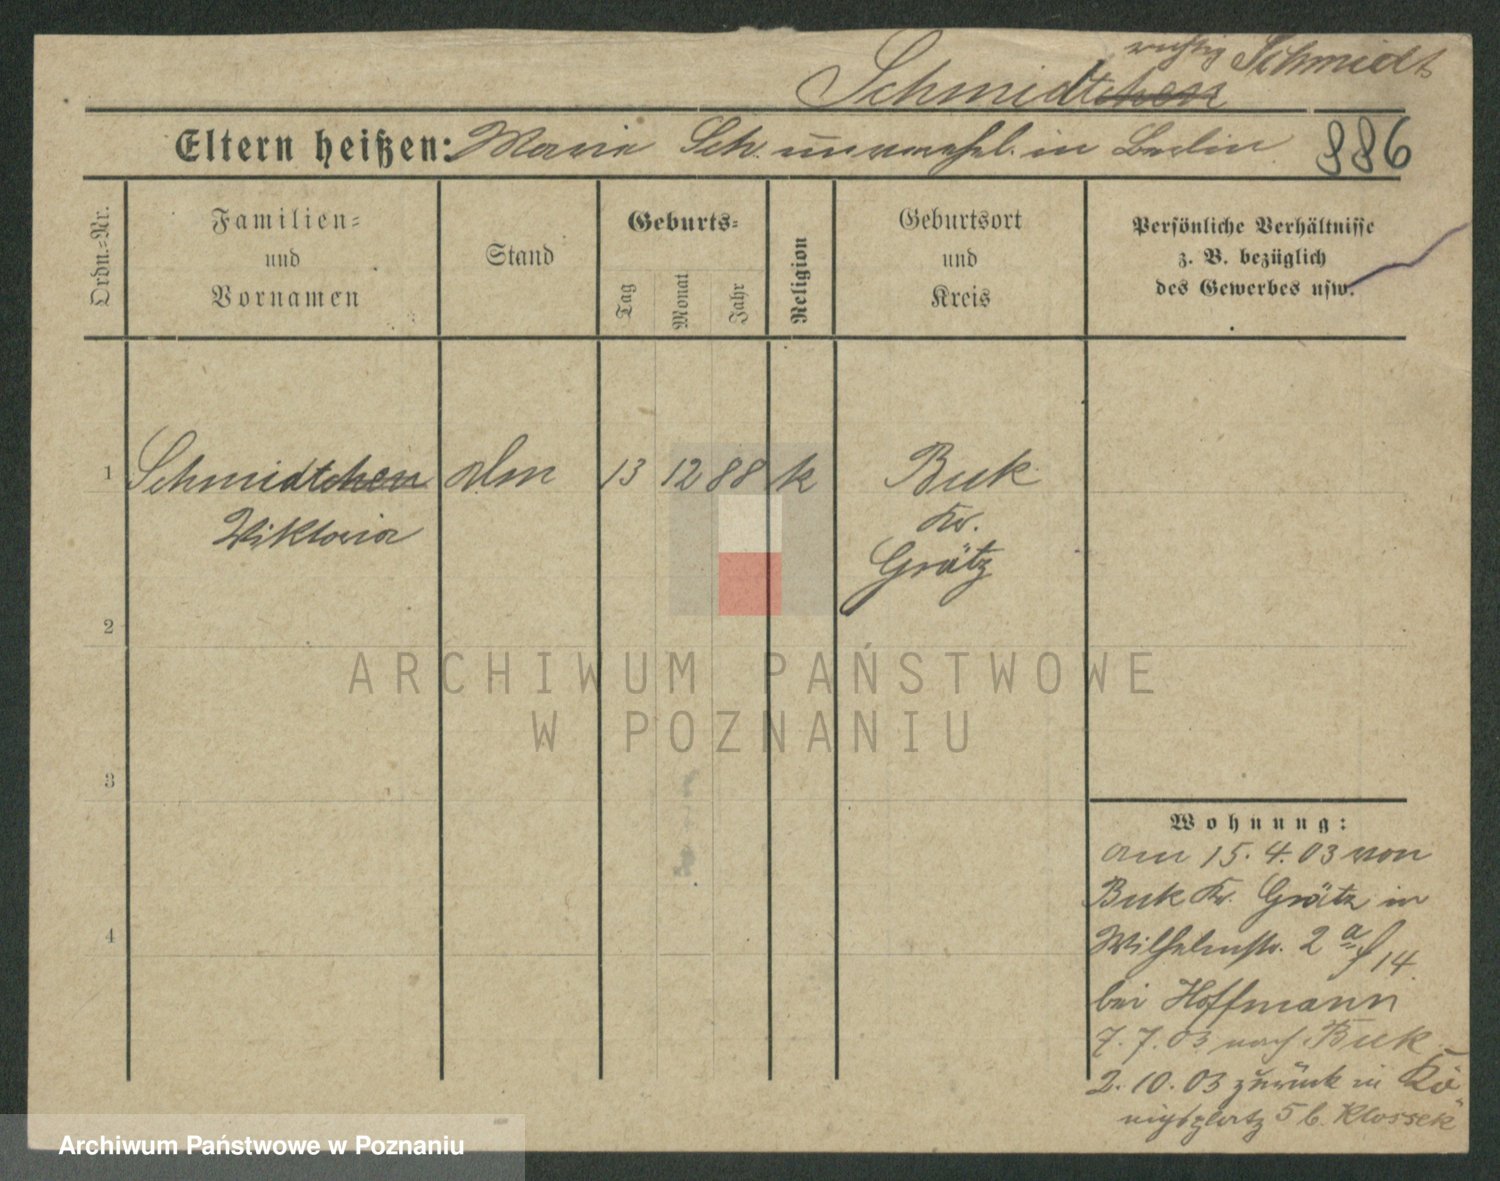 richtig Schmidt
Schmidtchen
Eltern heißen: Maria Sch. unverehel. in Berlin 886
Ordn.=Nr.
Familien=
und
Vornamen
Stand
Geburts=
Tag
Monat
Jahr
Religion
Geburtsort
und
Kreis
Persönliche Verhältnisse
z. B. bezüglich
des Gewerbes usw.
1 Schmidtchen 13 12 88 k Buk
Viktoria Kr.
Grätz
2
ARCHIWUM PAŃSTWOWE
W POZNANIU
3
4
Wohnung:
am 15. 4. 03 von
Buk Kr. Grätz in
Wilhelmstr. 2 a 14
bei Hoffmann
7. 7. 03 nach Buk
2. 10. 03 zurück in Kö
nigsplatz 5 b. Klossek
Archiwum Państwowe w Poznaniu